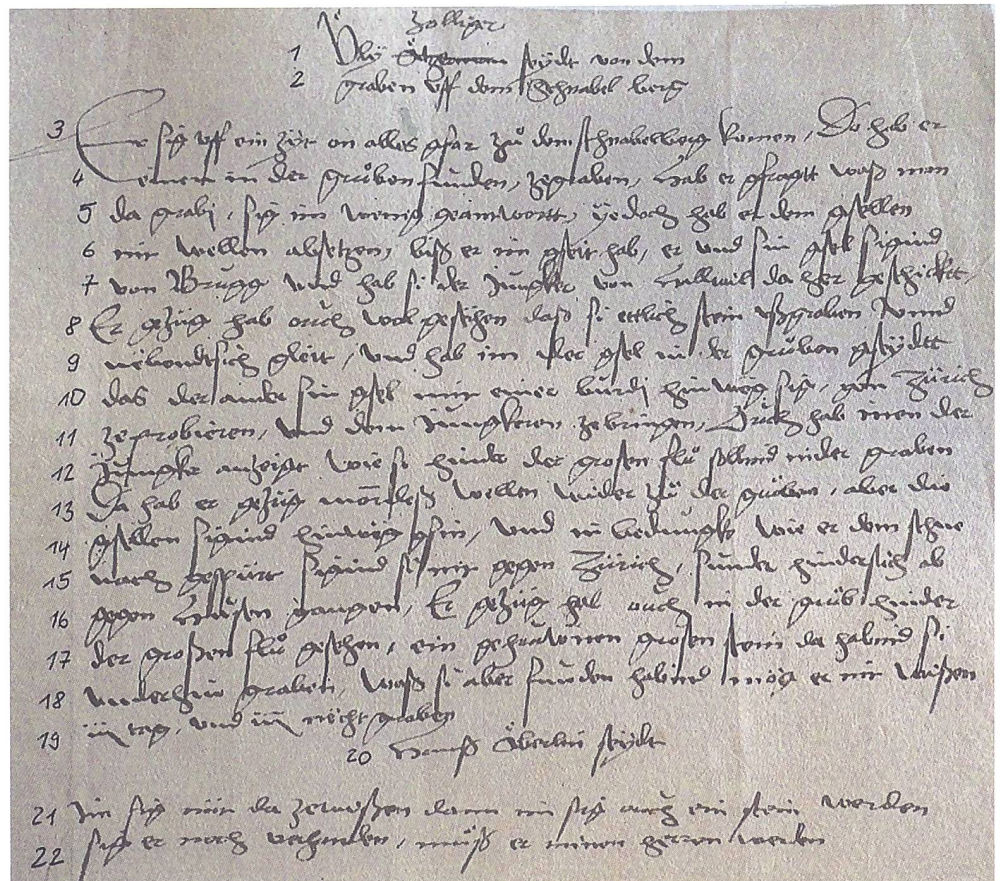 Zolliger
1 Uly seydt von dem
2 graben uff dem Schnabel berg
3 Er sig uff ein zyt on alles gfar zů dem schnabelberg komen, Do hab er
4 einen in der grůben funden, zegraben, hab er gfragtt waß man
5 da grabj, sig im wenig geantwortt, yedoch hab er dem gsellen
6 nit wellen absetzen, biß er im gseit hab, er und sin gsel sigind
7 von Brugg unnd hab si der Jungker von Hallwil da her geschicktt,
8 Er gezüg hab ouch wol gesechen daß si ettlich stein ußgraben unnd
9 nebendtsich gleit, und hab im der gsel in der grůben gseydtt
10 das der ander sin gsel mit einer burdj hinweg sig, gen Zürich
11 ze probieren, und dem Jungkeren zebringen, Ouch hab inen der
12 Jungker anzeigt wie si hinder der grosen flů sollind nider graben
13 Da hab er gezüg wellen wider zů der grůben, aber die
14 gsellen sigind hinweg gsin, und in bedungkt wie er dem schne
15 nach gespürt sigind si nit gegen Zürich, sunder hindersich ab
16 gegen Husen gangen, Er gezüg hab ouch in der grůb hinder
17 der großen flů gesehen, ein gehauwnen grosen stein da habind si
18 underhin graben, waß si aber funden habind mög er nit wüßen
19 iij tag, und iij nächt graben
20 Hanß Äberlin seydt
21 Im sig nüt da zewüßen dann im sig ouch ein stein worden
22 sig er noch verhanden, můß er minen herren werden